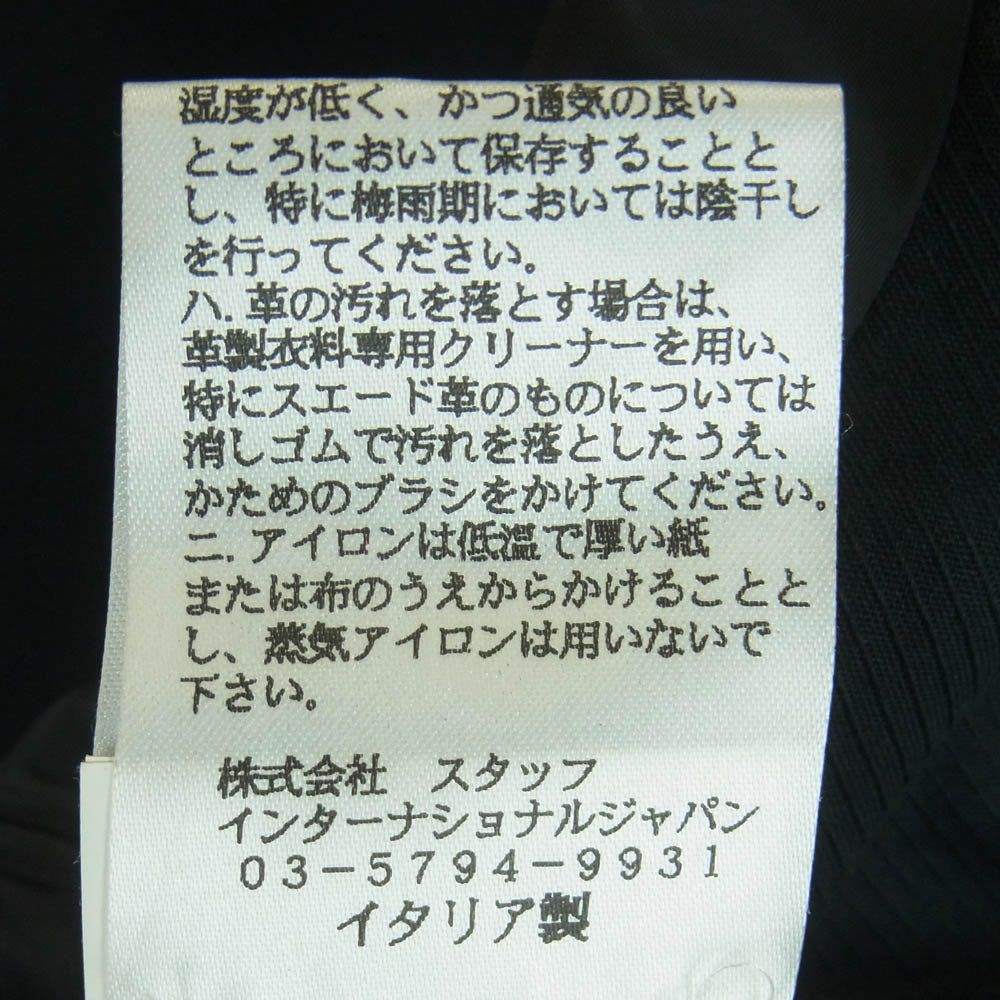 湿度が低く、かつ通気の良い
ところにおいて保存することと
し、特に梅雨期においては陰干し
を行ってください。
ハ.革の汚れを落とす場合は、
革製衣料専用クリーナーを用い、
特にスエード革のものについては
消しゴムで汚れを落としたうえ、
かためのブラシをかけてください。
ニ.アイロンは低温で厚い紙
または布のうえからかけることと
し、蒸気アイロンは用いないで
下さい。
株式会社 スタッフ
インターナショナルジャパン
03-5794-9931
イタリア製